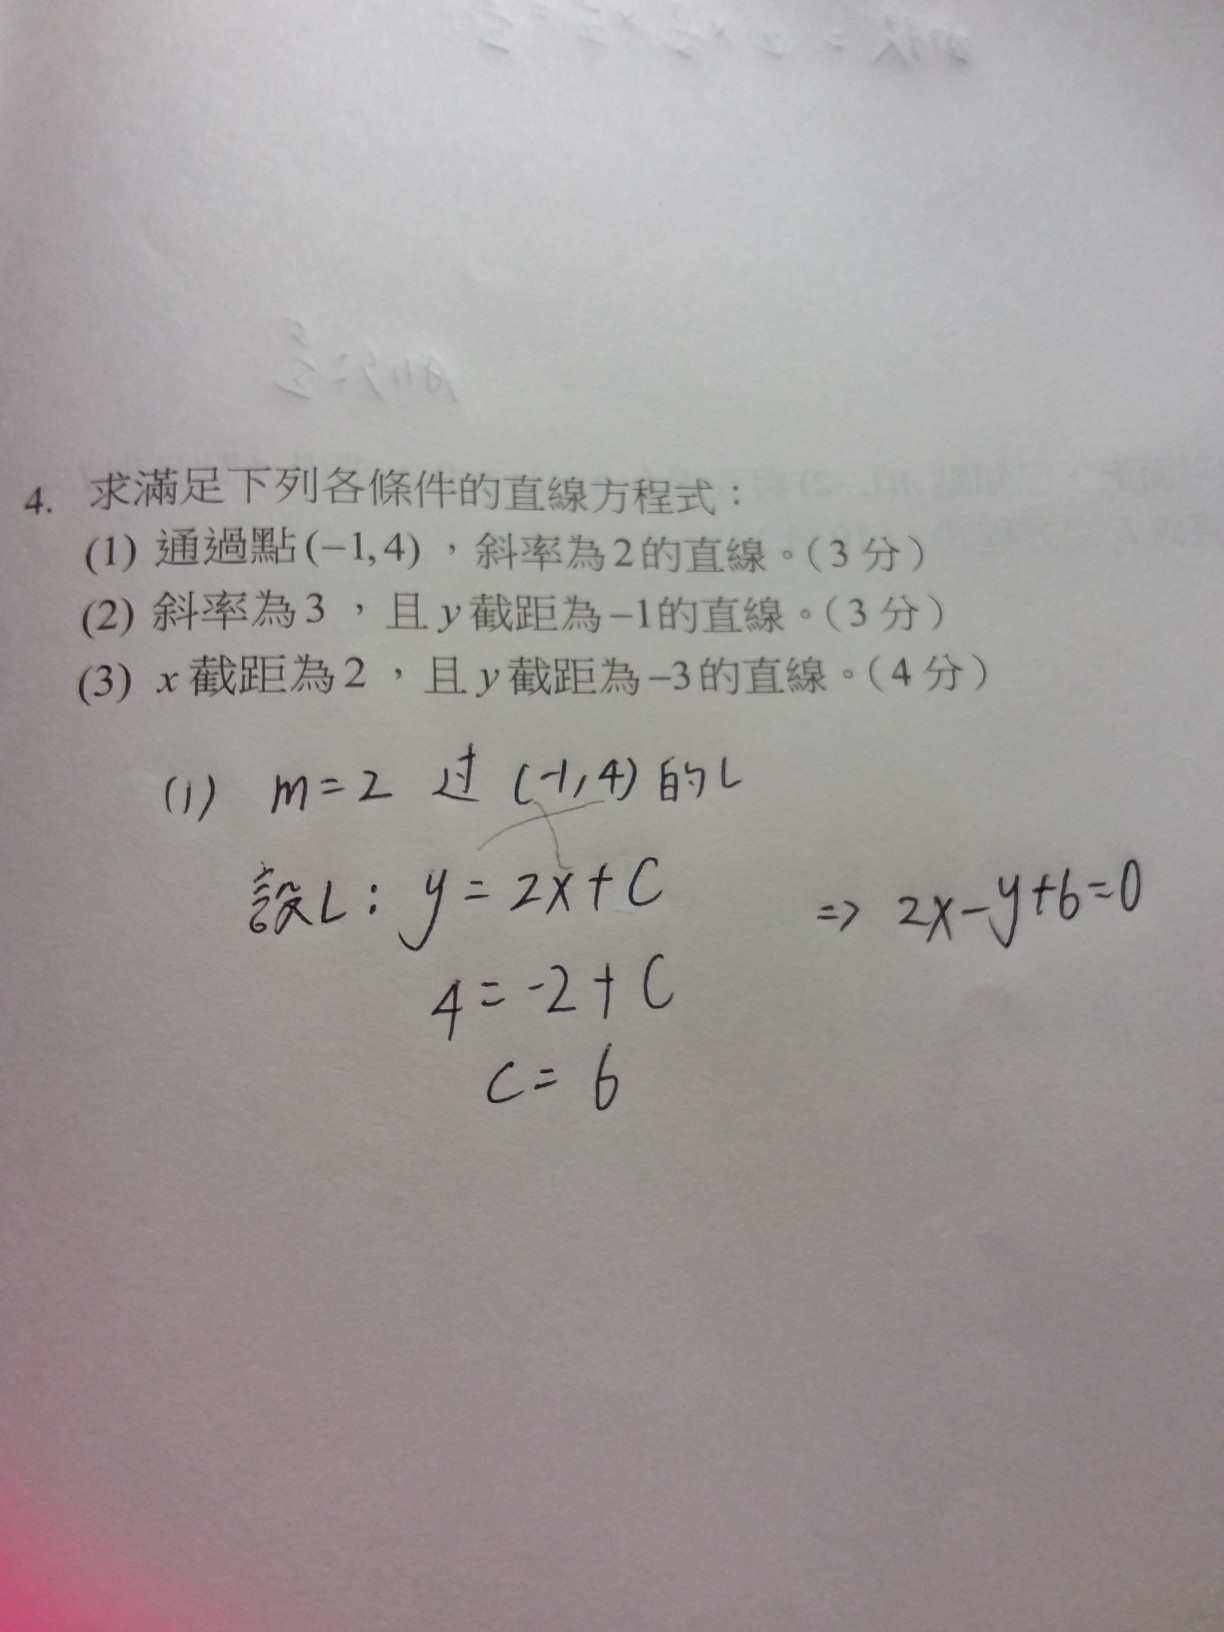 4. 求滿足下列各條件的直線方程式：
(1) 通過點(−1,4)，斜率為2的直線。(3 分)
(2) 斜率為3，且y截距為−1的直線。(3 分)
(3) x截距為2，且y截距為−3的直線。(4 分)
(1) m=2 过 (-1,4) 的L
設L：y=2x+C ⇒ 2x-y+6=0
4=-2+C
C=6